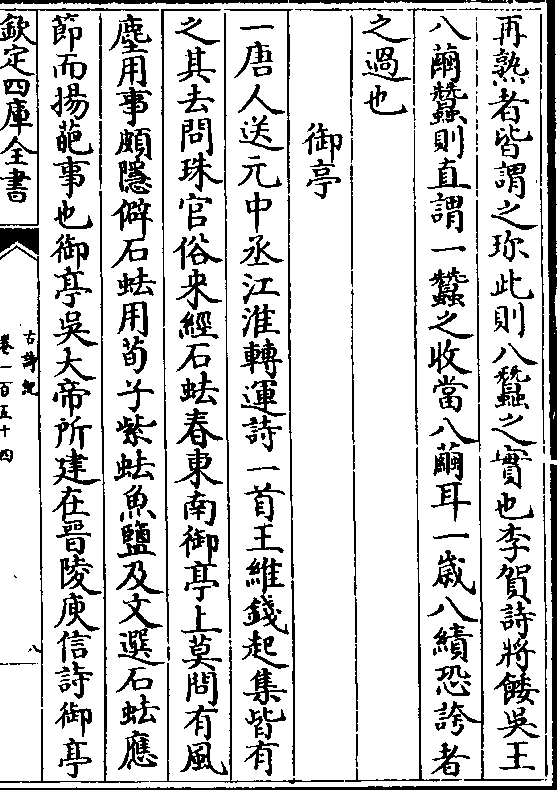 再熟者皆謂之珎此則八蠶之實也李賀詩將餧吳王
八繭蠶則直謂一蠶之收當八繭耳一歳八績恐誇者
之過也
御亭
一唐人送元中丞江淮轉運詩一首王維錢起集皆有
之其去問珠官俗来經石蚨春東南御亭上莫問有風
塵用事頗隱僻石蚨用荀子紫蚨魚鹽及文選石蚨應
節而揚葩事也御亭吳大帝所建在晉陵庾信詩御亭
欽定四庫全書
古詩紀
卷一百五十四
八